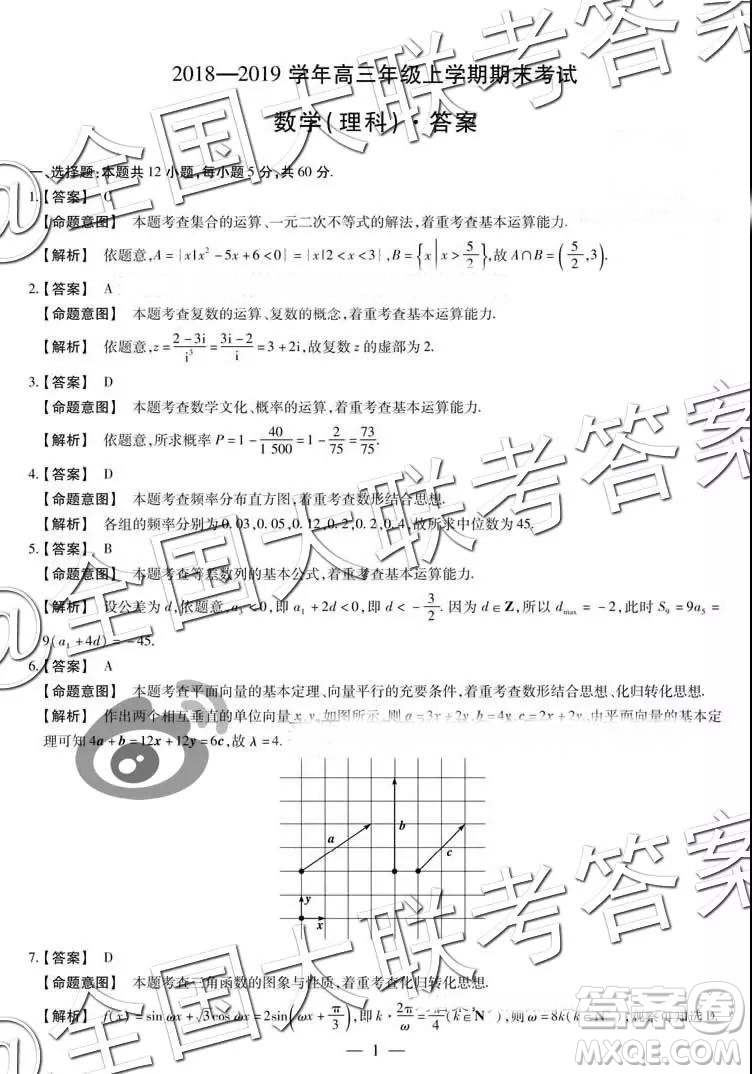 2018—2019 学年高三年级上学期期末考试
数学(理科)·答案
一、选择题:本题共 12 小题,每小题 5 分,共 60 分.
1.【答案】 C
【命题意图】 本题考查集合的运算、一元二次不等式的解法,着重考查基本运算能力.
【解析】 依题意,A={x|x²-5x+6<0}={x|2<x<3},B={x|x>5/2},故 A∩B=(5/2,3).
2.【答案】 A
【命题意图】 本题考查复数的运算、复数的概念,着重考查基本运算能力.
【解析】 依题意,z=(2-3i)/i³=(3i-2)/i=3+2i,故复数 z 的虚部为 2.
3.【答案】 D
【命题意图】 本题考查数学文化、概率的运算,着重考查基本运算能力.
【解析】 依题意,所求概率 P=1-40/1 500=1-2/75=73/75.
4.【答案】 D
【命题意图】 本题考查频率分布直方图,着重考查数形结合思想.
【解析】 各组的频率分别为 0.03,0.05,0.12,0.2,0.2,0.4,故所求中位数为 45.
5.【答案】 B
【命题意图】 本题考查等差数列的基本公式,着重考查基本运算能力.
【解析】 设公差为 d,依题意,a₃<0,即 a₁+2d<0,即 d<-3/2. 因为 d∈Z,所以 dmax=-2,此时 S₉=9a₅=
9(a₁+4d)=-45.
6.【答案】 A
【命题意图】 本题考查平面向量的基本定理、向量平行的充要条件,着重考查数形结合思想、化归转化思想.
【解析】 作出两个相互垂直的单位向量 x,y,如图所示,则 a=3x+2y,b=4y,c=2x+2y,由平面向量的基本定
理可知 4a+b=12x+12y=6c,故 λ=4.
a
b
c
y
x
7.【答案】 D
【命题意图】 本题考查三角函数的图象与性质,着重考查化归转化思想.
【解析】 f(x)=sin ωx+√3cos ωx=2sin(ωx+π/3),即 k·2π/ω=π/4(k∈N*),则 ω=8k(k∈N*),观察可知选 D.
— 1 —
@全国大联考答案
@全国大联考答案
@全国大联考答案
答案圈
MXQE.COM